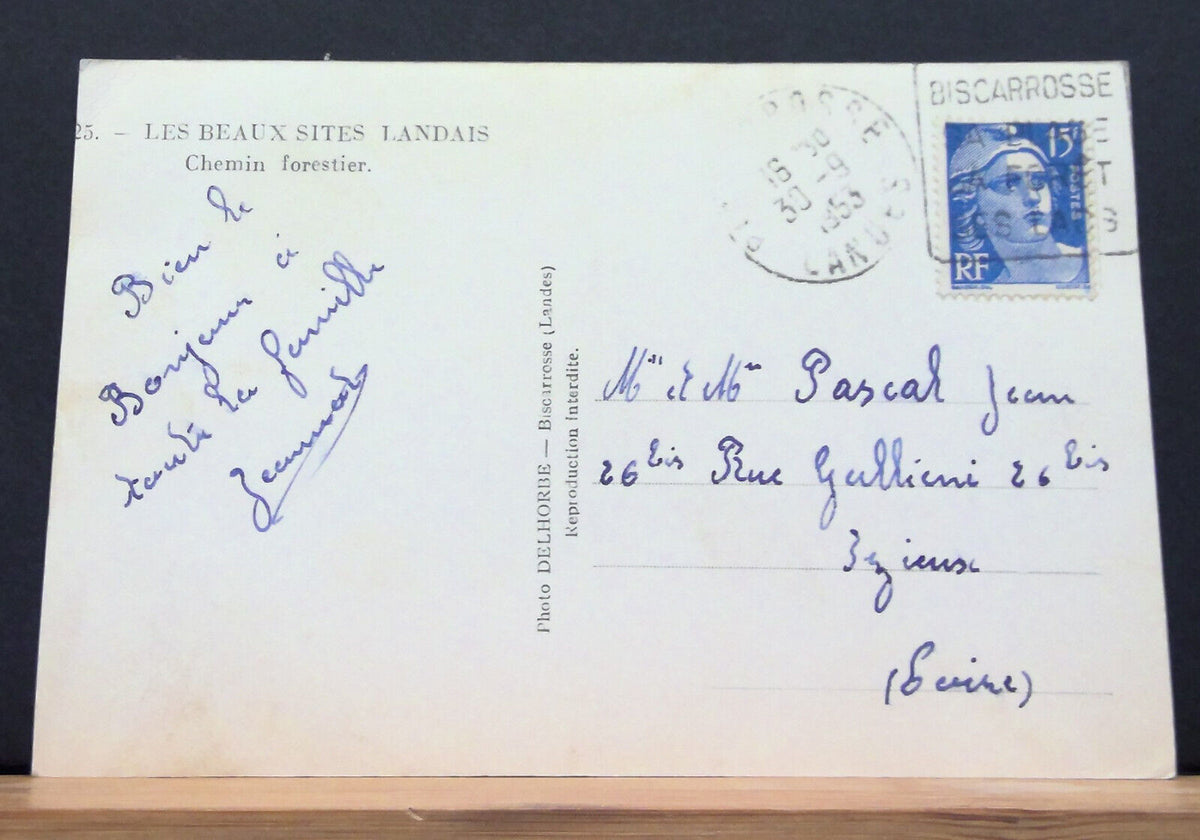 25. – LES BEAUX SITES LANDAIS
Chemin forestier.
Bien le
Bonjour à
toute la famille
Jeannot
Photo DELHORBE — Biscarrosse (Landes)
Reproduction Interdite.
16 30
30 -9
1953
LANDES
BISCARROSSE
15F
POSTES
RF
Mr et Mme Pascal Jean
26 bis Rue Gallieni 26 bis
Izieux
(Loire)